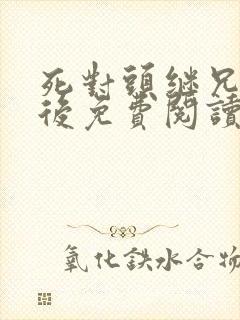 死對頭繼兄
後免費閱讀
氧化鉄水合物